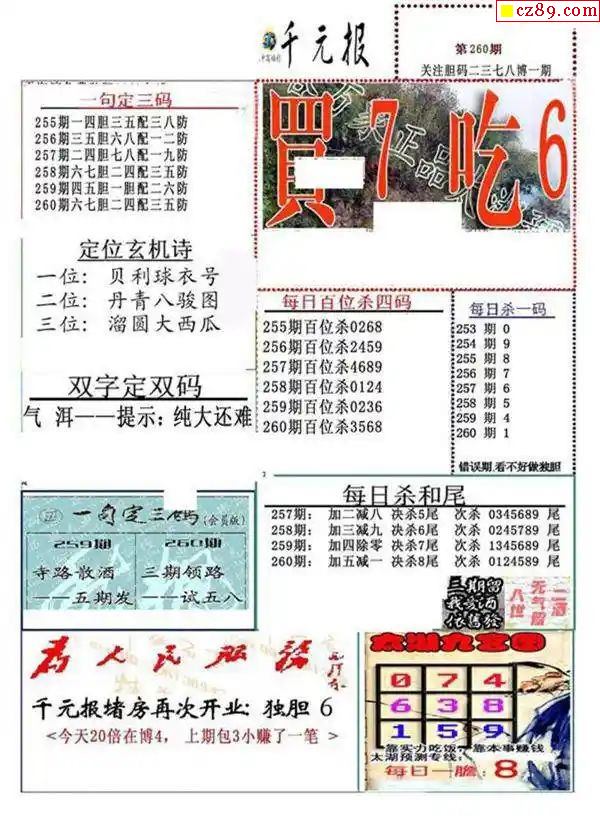 cz89.com
千元报
第260期
关注胆码二三七八博一期
一句定三码
255期一四胆三五配三八防
256期三五胆六八配一二防
257期二四胆七八配一九防
258期六七胆二四配三五防
259期四五胆一胆配二六防
260期六七胆二四配三五防
買7吃6
定位玄机诗
一位: 贝利球衣号
二位: 丹青八骏图
三位: 溜圆大西瓜
每日百位杀四码
255期百位杀0268
256期百位杀2459
257期百位杀4689
258期百位杀0124
259期百位杀0236
260期百位杀3568
每日杀一码
253 期 0
254 期 9
255 期 8
256 期 7
257 期 6
258 期 5
259 期 4
260 期 1
错误期,看不好做独胆
双字定双码
气 洱——提示: 纯大还难
每日杀和尾
257期: 加二减八 决杀5尾 次杀 0345689 尾
258期: 加三减九 决杀6尾 次杀 0245789 尾
259期: 加四除零 决杀7尾 次杀 1345689 尾
260期: 加五减一 决杀8尾 次杀 0124589 尾
一句定三码(会员版)
259期
寺路散酒
——五期发
260期
三期领路
——试五八
三期留
为人民服务
千元报堵房再次开业: 独胆 6
<今天20倍在博4, 上期包3小赚了一笔 >
太湖九宫图
0 7 4
6 3 8
1 5 9
靠实力吃饭, 靠本事赚钱
太湖预测专线:
每日一胆: 8